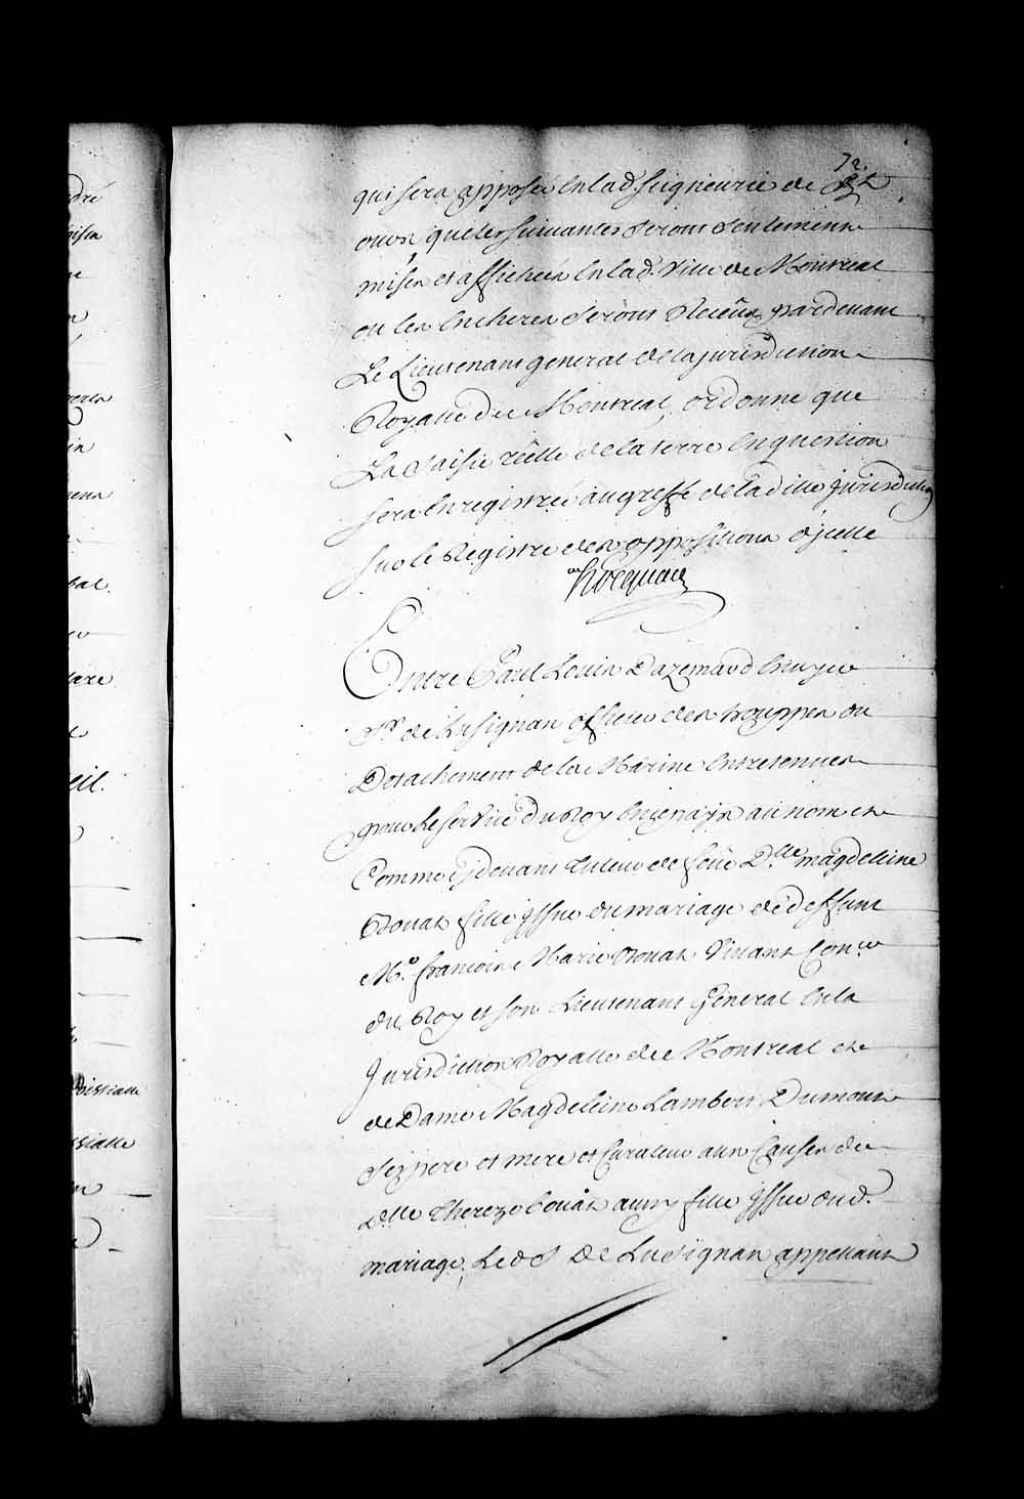 72.
qui sera apposée en lad. seigneurie de
ouos que les suivantes seront seulement
mises et affichées en lad. Ville de Montreal
ou les encheres seront Receües pardevant
Le Lieutenant general de la jurisdiction
Royalle de Montreal, ordonne que
La saisie réelle de la terre en question
sera enregistrée au greffe de la ditte jurisdiction
sur le Registre des oppositions d'jcelle
Hocquart
Entre Paul Louis Dazemard Ecuyer
Sr. de Lusignan officier des trouppes du
Detachement de la Marine entretenues
pour le service du Roy en ce pays au nom et
Comme cy devant tuteur de feüe Dlle. magdeleine
Boüat fille jssue du mariage de deffunt
Me. francois Marie Boüat Vivant Coner.
du Roy et son Lieutenant General en la
Jurisdiction Royalle de Montreal et
de Dame Magdeleine Lambert Dumont
ses pere et mere et Curateur aux Causes de
Dlle Therese Boüat aussy fille jssue dud.
mariage; Led S De Lusignan appellant
dré
ne
n
in
bal.
re
eil.
n